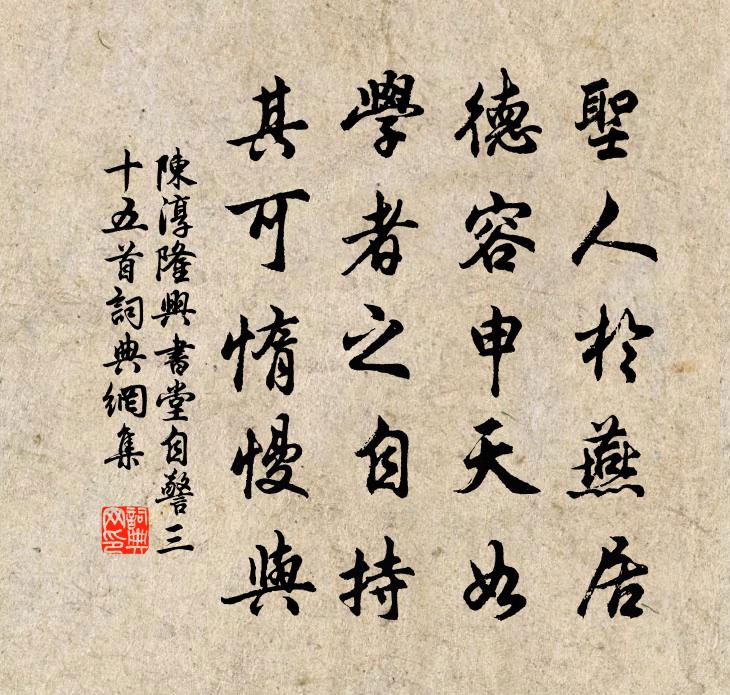 聖人於燕居
德容申天如
學者之自持
其可惰慢與
陳淳隆興書堂自警三
十五首詞典網集
詞典網印